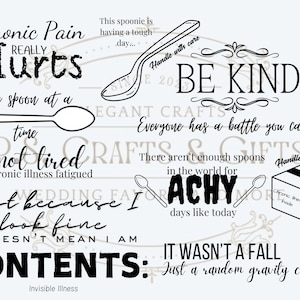 onic Pain
REALLY
Hurts
This spoonie is
having a tough
day...
Handle with care
BE KIND
Everyone has a battle you ca
spoon at a
time
not tired
ronic illness fatigued
There aren't enough spoons
in the world for
ACHY
days like today
st because I
look fine
ESN'T MEAN I AM
ONTENTS:
Invisible Illness
IT WASN'T A FALL
Just a random gravity c
Handle
ELEGANT CRAFTS
& CRAFTS & GIFTS
WEDDING FAVOU